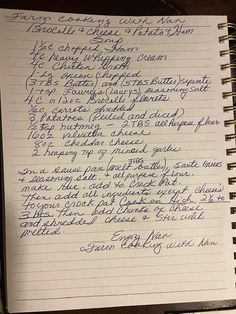 Farm Cooking With Nan
Brocolli & Cheese & Potato & Ham
Soup
1 1/2 c chopped Ham
4 c heavy Whipping Cream
4 c Chicken Broth
1/2 onion chopped
(3 TBS Butter) and (5 TBS Butter) Separate
1 tsp Seasoning Salt
4 c or 12oz Brocolli florets
carrots shredded
3 Potatoes (Peeled and diced)
1/2 tsp nutmeg - 2 TBS. all Purpose flour
16oz velveeta cheese
8oz cheddar cheese
2 heaping tsp of minced garlic
In a sauce pan (melt 3 TBS butter), saute onions
& seasoning salt & all purpose flour.
make Rue, add to Crock Pot.
Then add all ingredients except cheese
to your crock pot Cook on High 2 1/2 to
3 Hrs Then add chunks of cheese
and shredded cheese & Stir until
melted.
Enjoy Nan
Farm Cooking With Nan